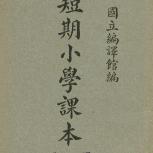 國立編譯館編
短期小學課本